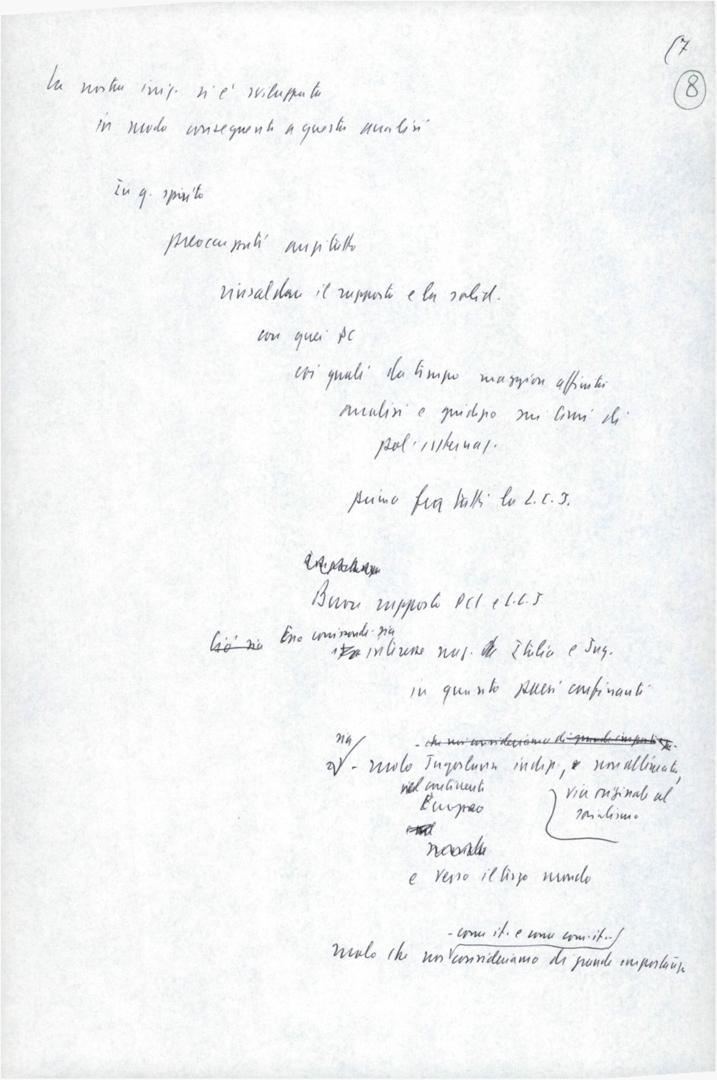 (7
8
La nostra iniz. si è sviluppata
in modo conseguente a questa analisi
In q. spirito
preoccupati anzitutto
rinsaldare il rapporto e la solid.
con quei PC
coi quali da tempo maggiori affinità
analisi e giudizio sui temi di
pol. internaz.
prima fra tutti la L.C.J.
Buon rapporto PCI e L.C.J
Ciò sia Esso corrisponde sia
interesse naz. Italia e Jug.
in quanto paesi confinanti
- che noi consideriamo di grande import.
sia
- ruolo Jugoslavia indip., non allineata,
nel continente via originale al
Europeo socialismo
e verso il terzo mondo
- come it. e come com. it. -
ruolo che noi consideriamo di grande importanza